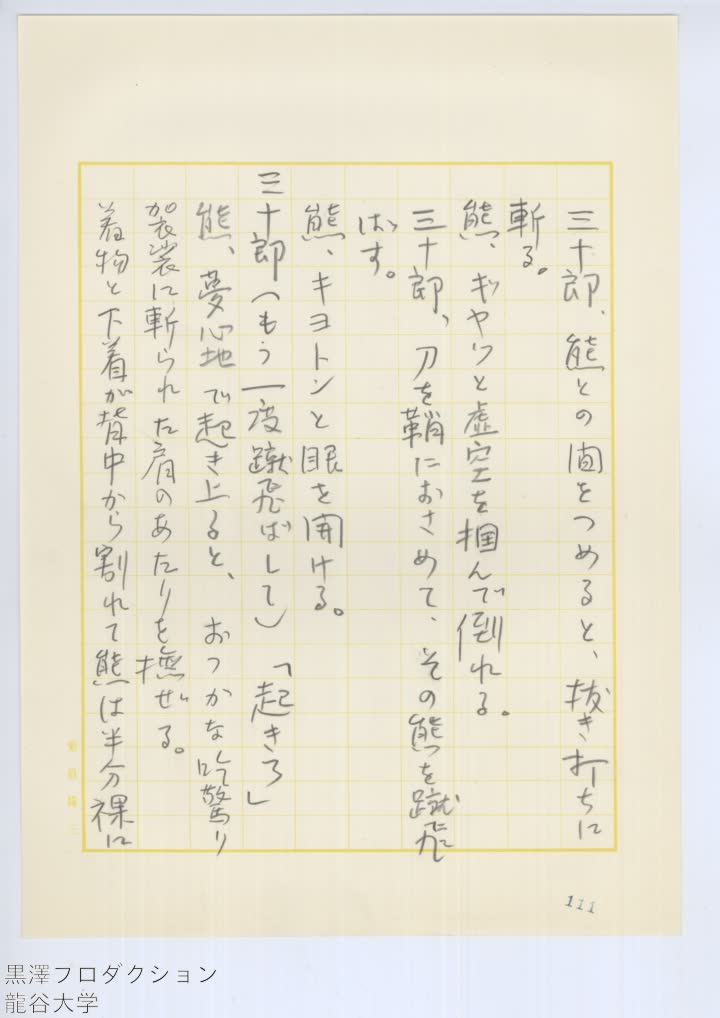 三十郎、熊との間をつめると、抜き打ちに
斬る。
熊、ギャッと虚空を掴んで倒れる。
三十郎、刀を鞘におさめて、その熊を蹴飛
ばす。
熊、キョトンと眼を開ける。
三十郎（もう一度蹴飛ばして）「起きろ」
熊、夢心地で起き上ると、おっかな吃驚り
袈裟に斬られた肩のあたりを撫ぜる。
着物と下着が背中から割れて熊は半分裸に
111
黒澤プロダクション
龍谷大学